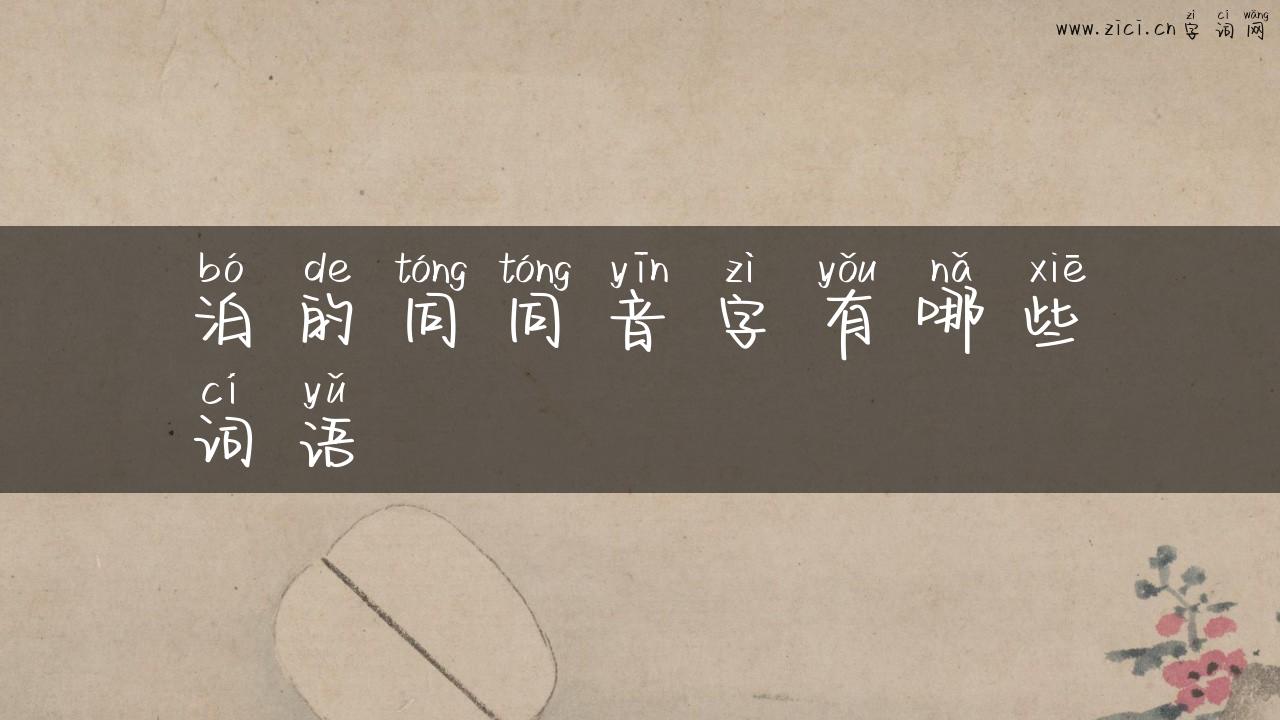 zì cí wǎng
www.zici.cn 字 词 网
bó de tóng tóng yīn zì yǒu nǎ xiē
泊 的 同 同 音 字 有 哪 些
cí yǔ
词 语